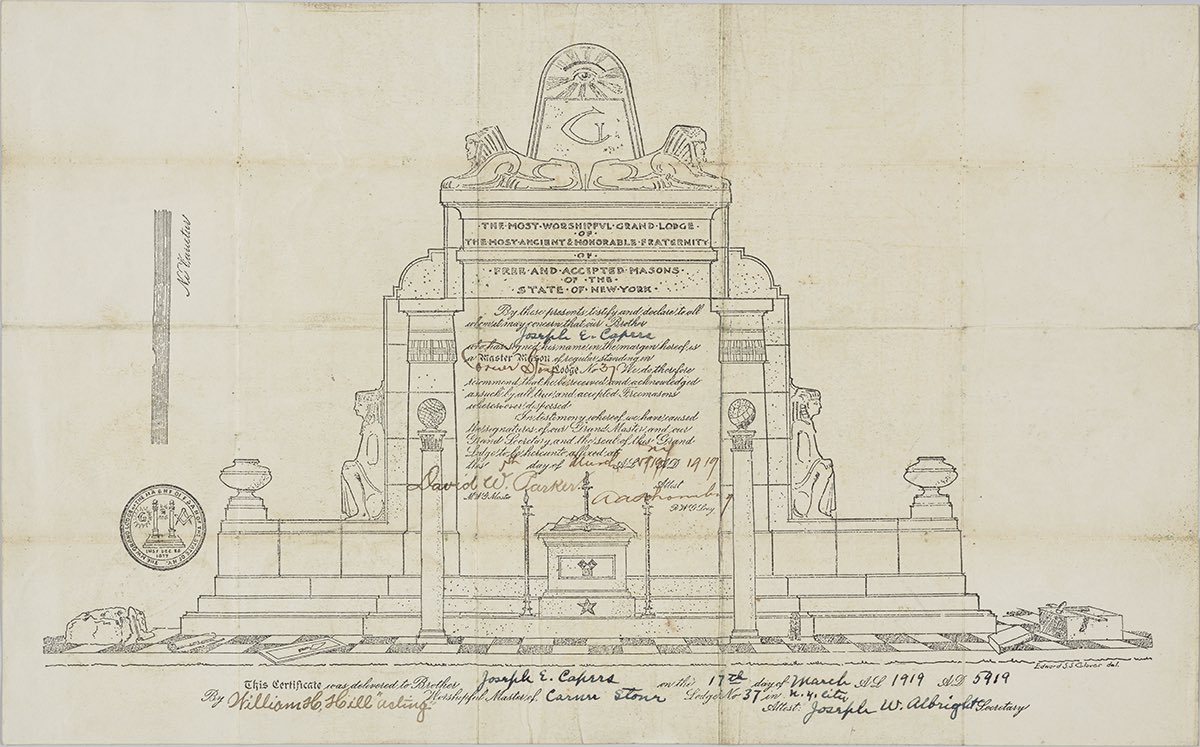 G
·THE·MOST·WORSHIPFVL·GRAND·LODGE·
·OF·
THE·MOST·ANCIENT&HONORABLE·FRATERNITY
·OF·
·FREE·AND·ACCEPTED·MASONS·
OF·THE·
·STATE·OF·NEW·YORK·
By these presents, testify and declare to all
whom it may concern that our Brother
Joseph E. Capers
who has signed his name in the margin hereof is
a Master Mason of regular standing in
Lodge No 37 We do therefore
recommend that he be received and acknowledged
as such by all true and accepted Freemasons
wheresoever dispersed
In testimony whereof we have caused
the signatures of our Grand Master and our
Grand Secretary, and the seal of this Grand
Lodge to be hereunto affixed at NY
this 5th day of AD 1919
David W. Parker
Attest
M W G Master
AASchomburg
R W G Secy
Ne Varietur
INST DEC 26
This Certificate was delivered to Brother Joseph E. Capers on the 17th day of March AL 1919 AD 5919
By William H. Hill "acting" Worshipful Master of Corner Stone Lodge No 37 in N.Y. City
Attest: Joseph W. Albright Secretary